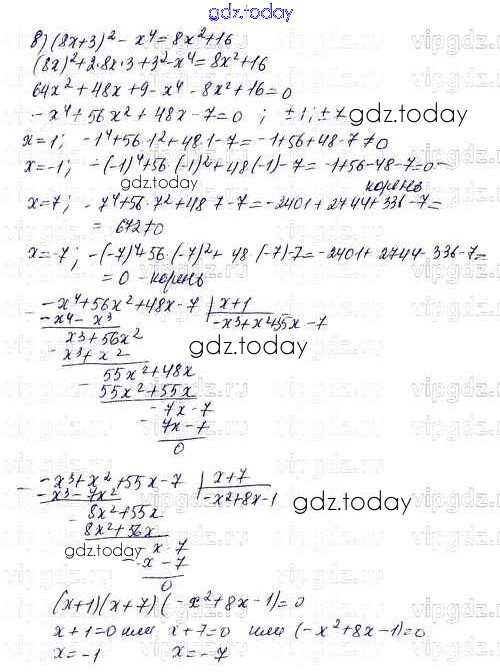 gdz.today
8) (8x+3)² - x⁴ = 8x² + 16
(8x)² + 2·8x·3 + 3² - x⁴ = 8x² + 16
64x² + 48x + 9 - x⁴ - 8x² + 16 = 0
- x⁴ + 56x² + 48x - 7 = 0 ; ±1; ±7
gdz.today
x = 1; - 1⁴ + 56·1² + 48·1 - 7 = -1 + 56 + 48 - 7 ≠ 0
x = -1; - (-1)⁴ + 56·(-1)² + 48(-1) - 7 = -1 + 56 - 48 - 7 = 0 -
корень
x = 7; - 7⁴ + 56·7² + 48·7 - 7 = -2401 + 2744 + 336 - 7 =
= 672 ≠ 0
x = -7; - (-7)⁴ + 56·(-7)² + 48·(-7) - 7 = -2401 + 2744 - 336 - 7 =
= 0 - корень
- -x⁴ + 56x² + 48x - 7 | x + 1
-x⁴ - x³ -x³ + x² + 55x - 7
x³ + 56x²
gdz.today
- x³ + x²
55x² + 48x
- 55x² + 55x
- 7x - 7
7x - 7
0
- -x³ + x² + 55x - 7 | x + 7
-x³ - 7x² -x² + 8x - 1
gdz.today
- 8x² + 55x
8x² + 56x
gdz.today
- x - 7
- x - 7
0
(x+1)(x+7)(-x² + 8x - 1) = 0
x + 1 = 0 или x + 7 = 0 или (-x² + 8x - 1) = 0
x = -1 x = -7
vipgdz.ru